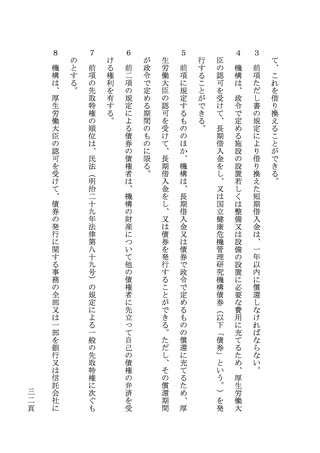 て、これを借り換えることができる。
３　前項ただし書の規定により借り換えた短期借入金は、一年以内に償還しなければならない。
４　機構は、政令で定める施設の設置若しくは整備又は設備の設置に必要な費用に充てるため、厚生労働大
臣の認可を受けて、長期借入金をし、又は国立健康危機管理研究機構債券（以下「債券」という。）を発
行することができる。
５　前項に規定するもののほか、機構は、長期借入金又は債券で政令で定めるものの償還に充てるため、厚
生労働大臣の認可を受けて、長期借入金をし、又は債券を発行することができる。ただし、その償還期間
が政令で定める期間のものに限る。
６　前二項の規定による債券の債権者は、機構の財産について他の債権者に先立って自己の債権の弁済を受
ける権利を有する。
７　前項の先取特権の順位は、民法（明治二十九年法律第八十九号）の規定による一般の先取特権に次ぐも
のとする。
８　機構は、厚生労働大臣の認可を受けて、債券の発行に関する事務の全部又は一部を銀行又は信託会社に
三二頁